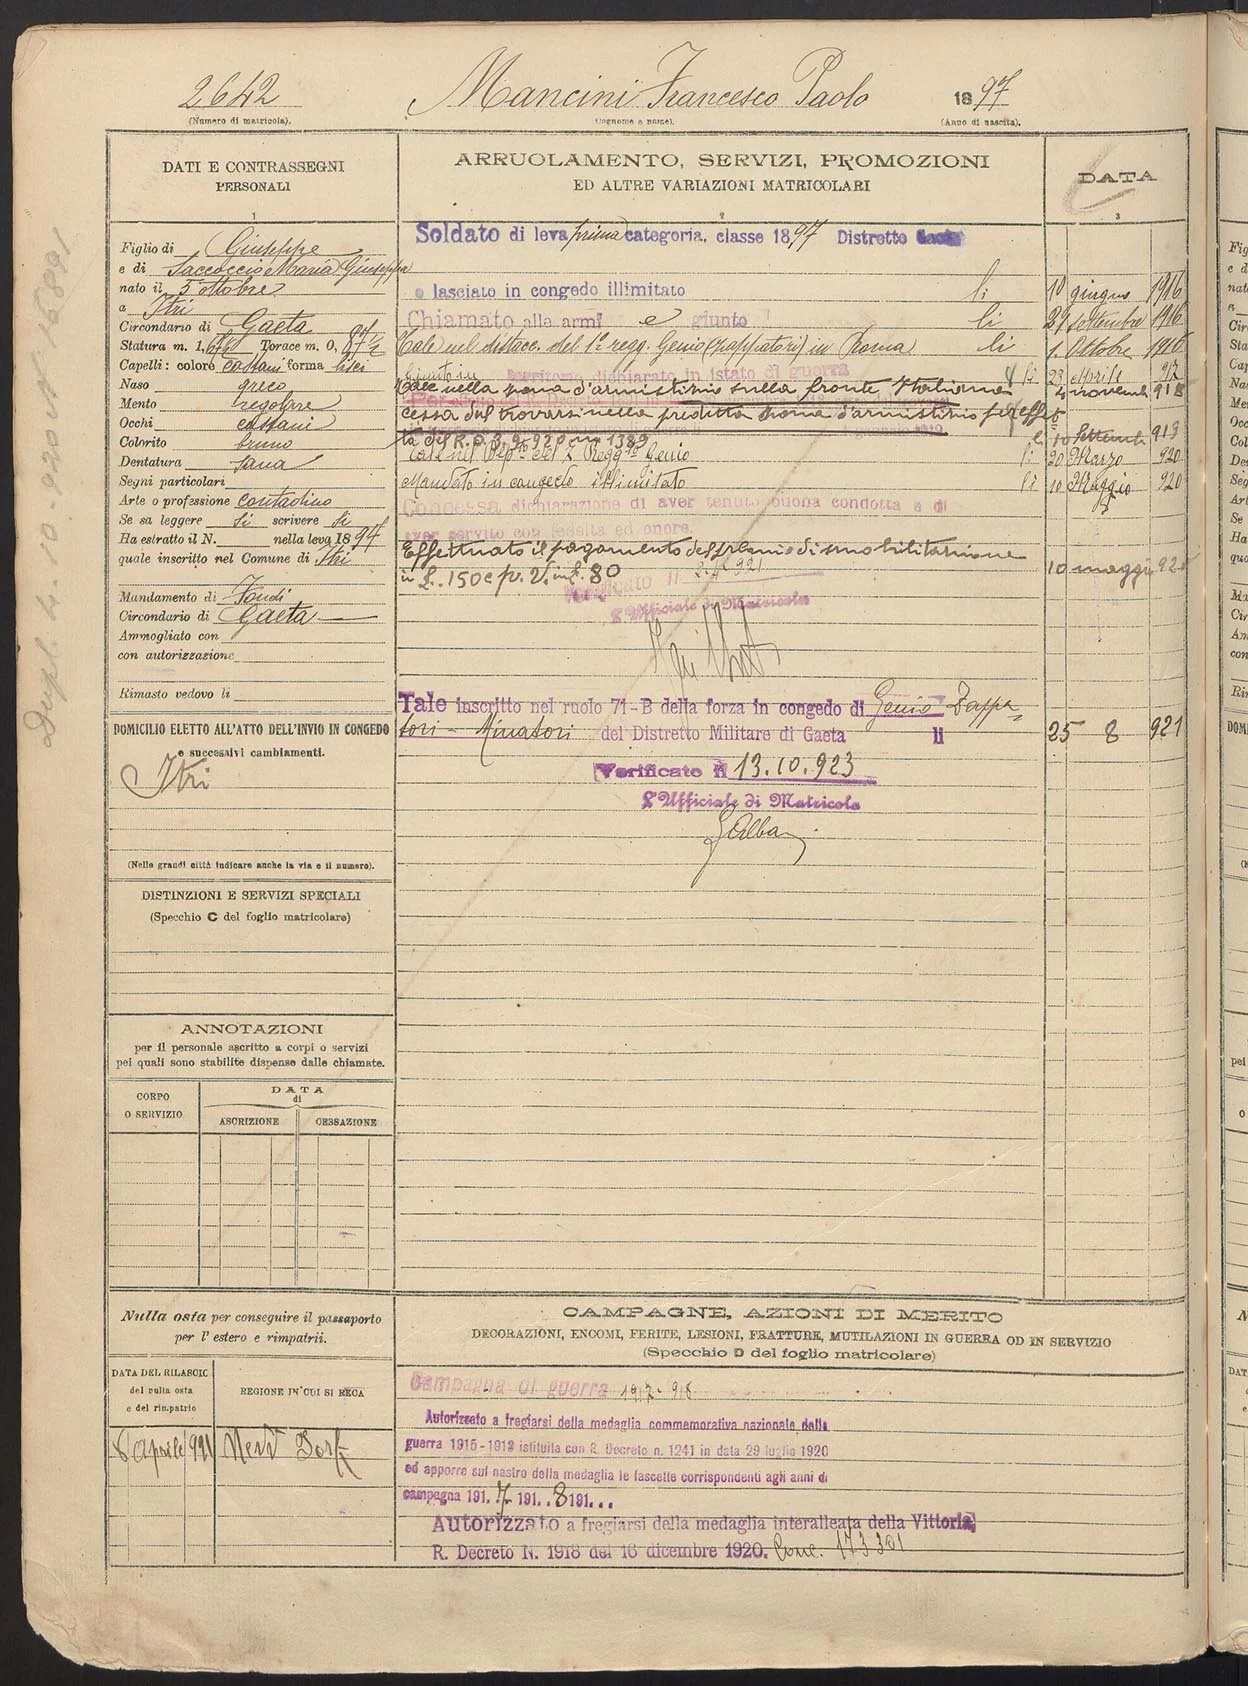 2642 Mancini Francesco Paolo 1897
(Numero di matricola). (Cognome e nome). (Anno di nascita).
DATI E CONTRASSEGNI
PERSONALI
1
Figlio di Giuseppe
e di Saccoccio Maria Giuseppa
nato il 5 ottobre
a Itri
Circondario di Gaeta
Statura m. 1, Torace m. 0, 87 1/2
Capelli: colore castani forma lisci
Naso greco
Mento regolare
Occhi castani
Colorito bruno
Dentatura sana
Segni particolari
Arte o professione contadino
Se sa leggere si scrivere si
Ha estratto il N. nella leva 1897
quale inscritto nel Comune di Itri
Mandamento di Fondi
Circondario di Gaeta
Ammogliato con
con autorizzazione
Rimasto vedovo li
DOMICILIO ELETTO ALL'ATTO DELL'INVIO IN CONGEDO
e successivi cambiamenti.
Itri
(Nelle grandi città indicare anche la via e il numero).
DISTINZIONI E SERVIZI SPECIALI
(Specchio C del foglio matricolare)
ANNOTAZIONI
per il personale ascritto a corpi o servizi
pei quali sono stabilite dispense dalle chiamate.
CORPO
O SERVIZIO
DATA
di
ASCRIZIONE CESSAZIONE
Nulla osta per conseguire il passaporto
per l'estero e rimpatrii.
DATA DEL RILASCIO
del nulla osta
e del rimpatrio
REGIONE IN CUI SI RECA
6 Aprile 921 New York
ARRUOLAMENTO, SERVIZI, PROMOZIONI
ED ALTRE VARIAZIONI MATRICOLARI
2
DATA
3
Soldato di leva prima categoria, classe 1897 Distretto Gaeta
e lasciato in congedo illimitato li 10 giugno 1916
Chiamato alle armi e giunto li 29 settembre 1916
Tale nel distacc. del 1° regg. Genio (zappatori) in Roma li 1. Ottobre 1916
Giunto in territorio dichiarato in istato di guerra li 23 Aprile 917
Tale nella zona d'armistizio sulla fronte Italiana 4 novemb 918
Cessa dal trovarsi nella predetta zona d'armistizio per effet
to del R.D. 3.9.920 n. 1389 10 Settemb 919
Tale nel Dep.to del 2 Regg.to Genio li 20 Marzo 920
Mandato in congedo illimitato li 10 Maggio 920
Concessa dichiarazione di aver tenuto buona condotta e di
aver servito con fedeltà ed onore.
Effettuato il pagamento del premio di smobilitazione
in £. 150 e p. V. in £. 80 10 maggio 920
Verificato li 921
L'Ufficiale di Matricola
Tale inscritto nel ruolo 71-B della forza in congedo di Genio Zappa=
tori - Minatori del Distretto Militare di Gaeta li 25 8 921
Verificato li 13.10.923
L'Ufficiale di Matricola
CAMPAGNE, AZIONI DI MERITO
DECORAZIONI, ENCOMI, FERITE, LESIONI, FRATTURE, MUTILAZIONI IN GUERRA OD IN SERVIZIO
(Specchio D del foglio matricolare)
Campagna di guerra 1917-918
Autorizzato a fregiarsi della medaglia commemorativa nazionale della
guerra 1915-1918 istituita con R. Decreto n. 1241 in data 29 luglio 1920
ed apporre sul nastro della medaglia le fascette corrispondenti agli anni di
campagna 191. 7 191. . 8 191. . .
Autorizzato a fregiarsi della medaglia interalleata della Vittoria,
R. Decreto N. 1918 del 16 dicembre 1920. Conc. 173301
Dupl. 4-10-920 N. 16891